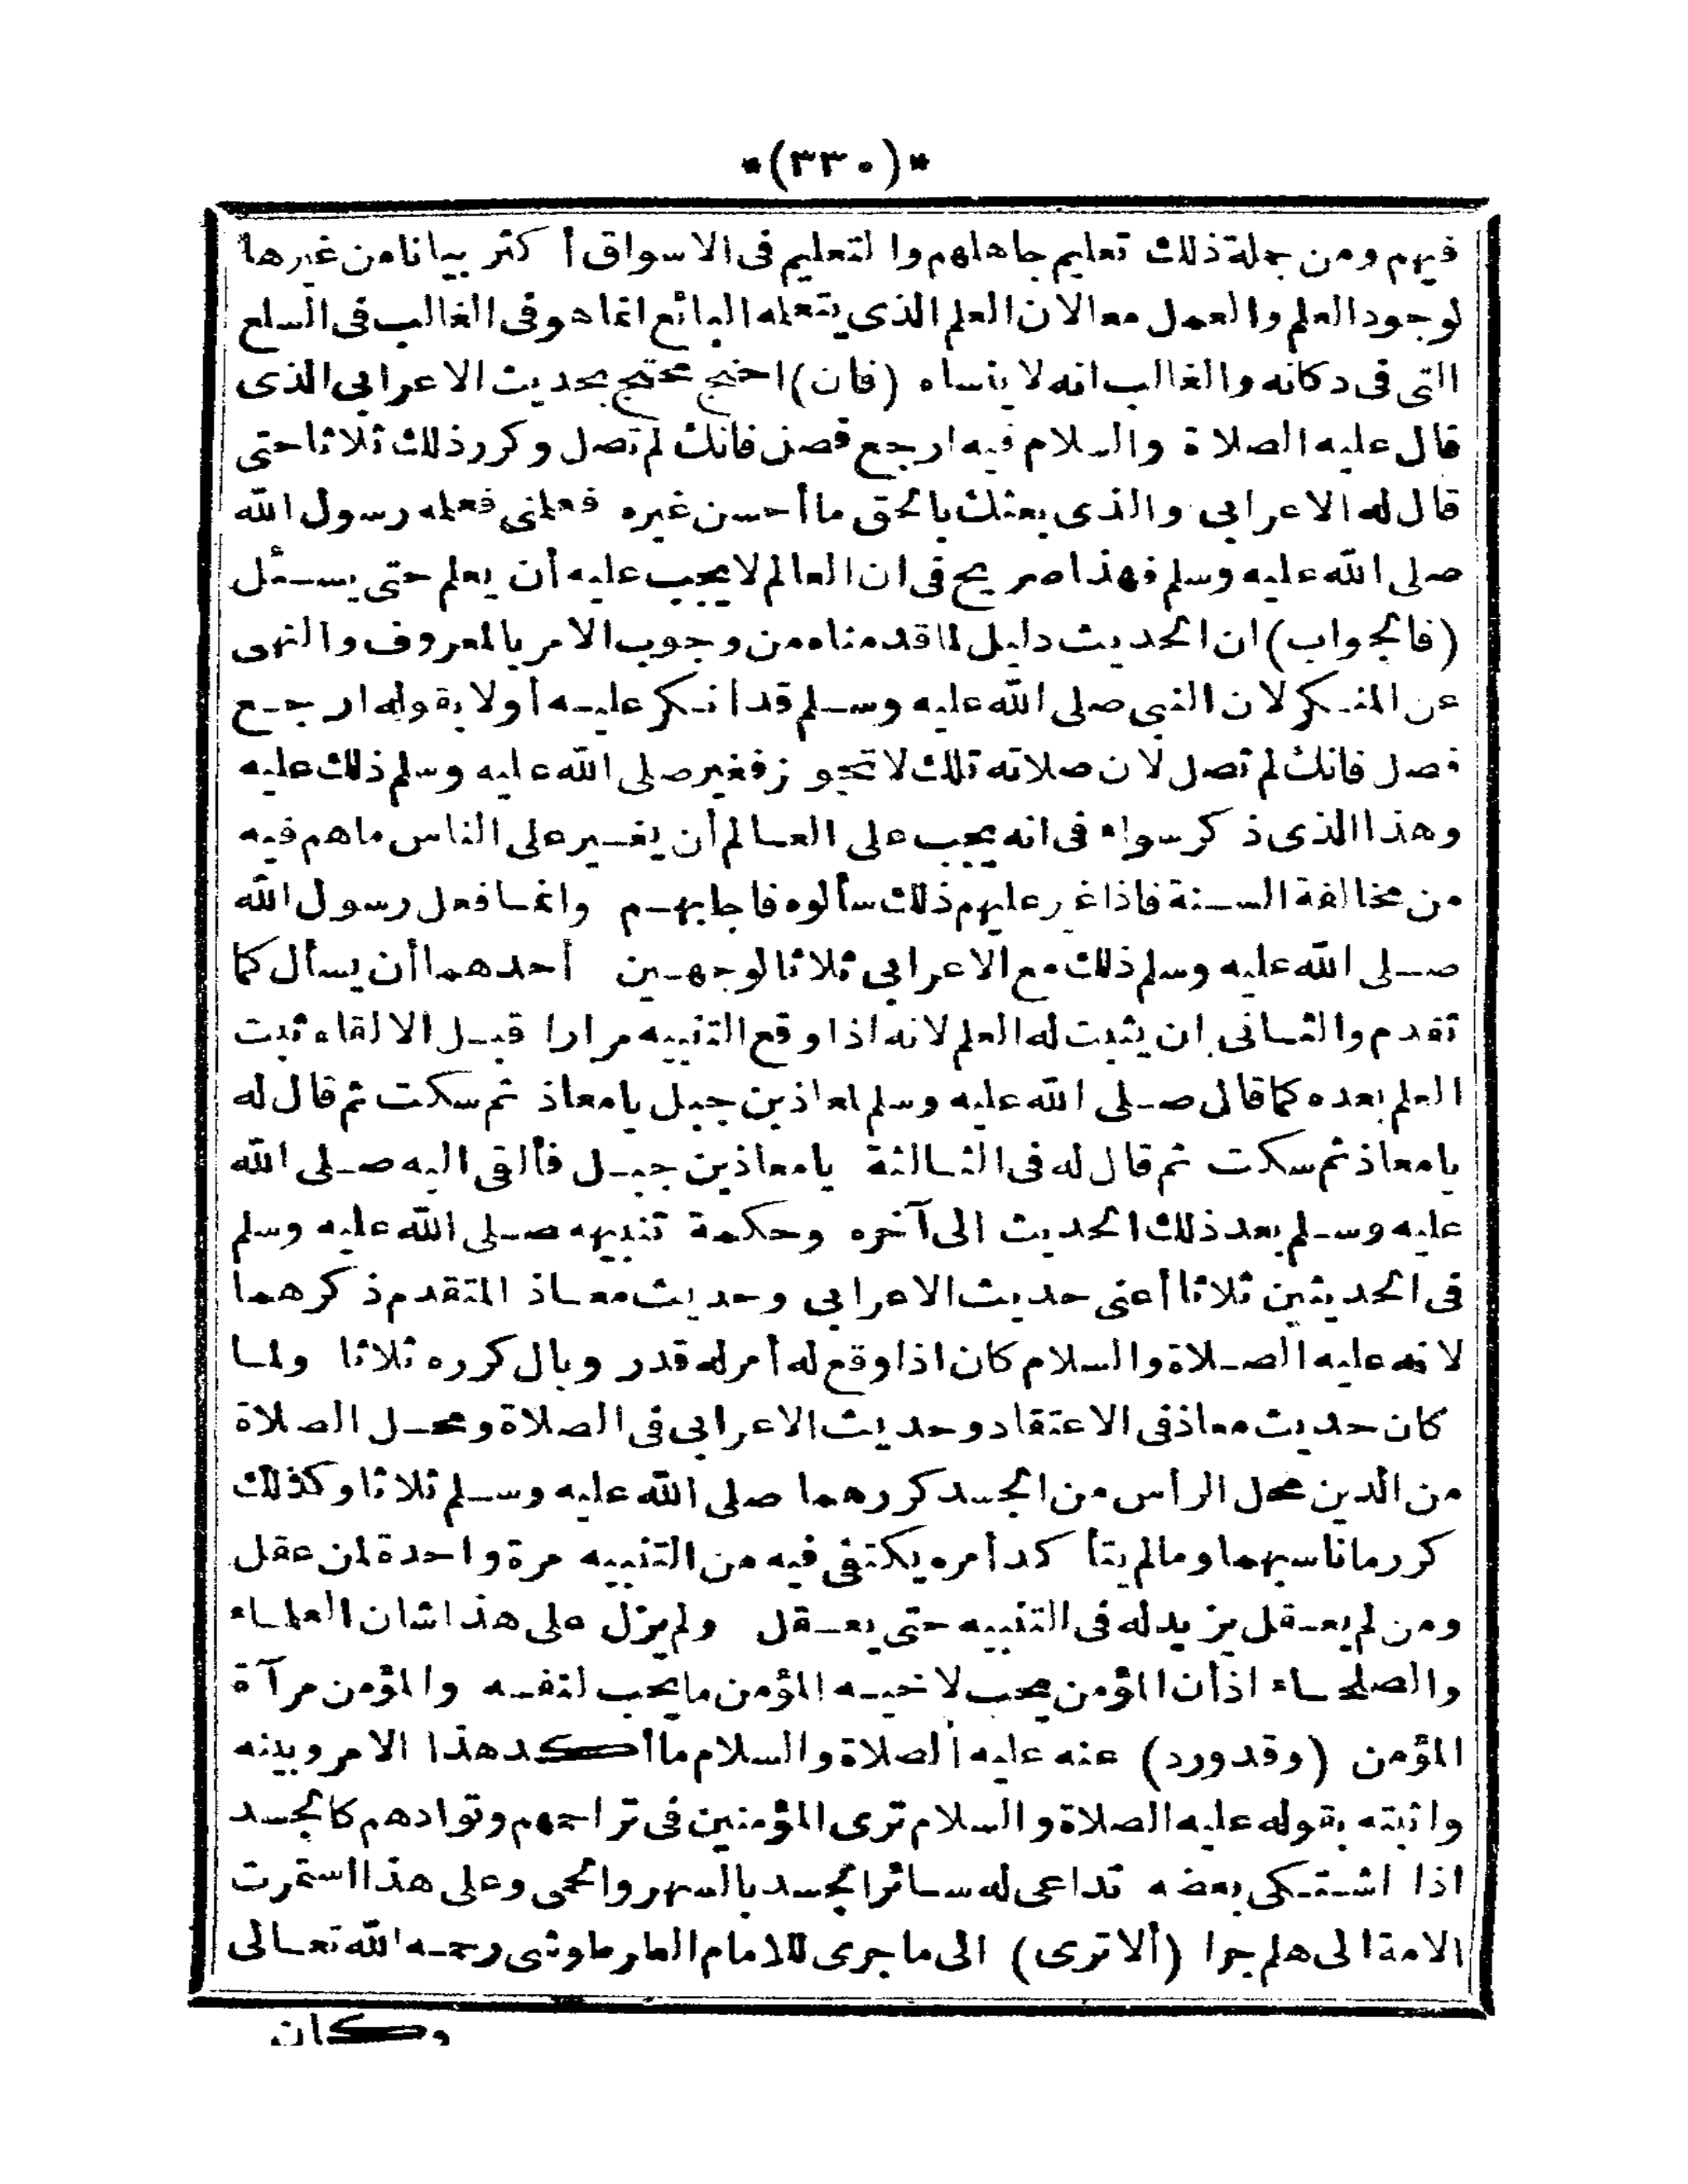 *(٣٣٠)*
فيهم ومن جملة ذلك تعليم جاهلهم والتعليم فى الاسواق أكثر بيانا من غيرها
لوجود العلم والعمل معا لان العلم الذى يتعلمه البائع انما هو فى الغالب فى السلع
التى فى دكانه والغالب انه لا ينساه (فان) احتج محتج بحديث الاعرابى الذى
قال عليه الصلاة والسلام فيه ارجع فصل فانك لم تصل وكرر ذلك ثلاثا حتى
قال له الاعرابى والذى بعثك بالحق ما أحسن غيره فعلمنى فعلمه رسول الله
صلى الله عليه وسلم فهذا صريح فى ان العالم لا يجب عليه أن يعلم حتى يسئل
(فالجواب) ان الحديث دليل لما قدمناه من وجوب الامر بالمعروف والنهى
عن المنكر لان النبى صلى الله عليه وسلم قد أنكر عليه أولا بقوله ارجع
فصل فانك لم تصل لان صلاته تلك لا تجوز فغير صلى الله عليه وسلم ذلك عليه
وهذا الذى ذكر سواء فى انه يجب على العالم أن يغير على الناس ما هم فيه
من مخالفة السنة فاذا غير عليهم ذلك سألوه فاجابهم وانما فعل رسول الله
صلى الله عليه وسلم ذلك مع الاعرابى ثلاثا لوجهين أحدهما أن يسأل كما
تقدم والثانى ان يثبت له العلم لانه اذا وقع التنبيه مرارا قبل الالقاء ثبت
العلم بعده كما قال صلى الله عليه وسلم لمعاذ بن جبل يا معاذ ثم سكت ثم قال له
يا معاذ ثم سكت ثم قال له فى الثالثة يا معاذ بن جبل فألقى اليه صلى الله
عليه وسلم بعد ذلك الحديث الى آخره وحكمة تنبيهه صلى الله عليه وسلم
فى الحديثين ثلاثا أعنى حديث الاعرابى وحديث معاذ المتقدم ذكرهما
لانه عليه الصلاة والسلام كان اذا وقع له أمر له قدر وبال كرره ثلاثا ولما
كان حديث معاذ فى الاعتقاد وحديث الاعرابى فى الصلاة ومحل الصلاة
من الدين محل الرأس من الجسد كررهما صلى الله عليه وسلم ثلاثا وكذلك
كرر ما ناسبهما وما لم يتأكد أمره يكتفى فيه من التنبيه مرة واحدة لمن عقل
ومن لم يعقل يزيد له فى التنبيه حتى يعقل ولم يزل على هذا شان العلماء
والصلحاء اذ أن المؤمن يحب لاخيه المؤمن ما يحب لنفسه والمؤمن مرآة
المؤمن (وقد ورد) عنه عليه الصلاة والسلام ما أكد هذا الامر وبينه
واثبته بقوله عليه الصلاة والسلام ترى المؤمنين فى تراحمهم وتوادهم كالجسد
اذا اشتكى بعضه تداعى له سائر الجسد بالسهر والحمى وعلى هذا استمرت
الامة الى هلم جرا (ألا ترى) الى ما جرى للامام الطرطوشى رحمه الله تعالى
وكان